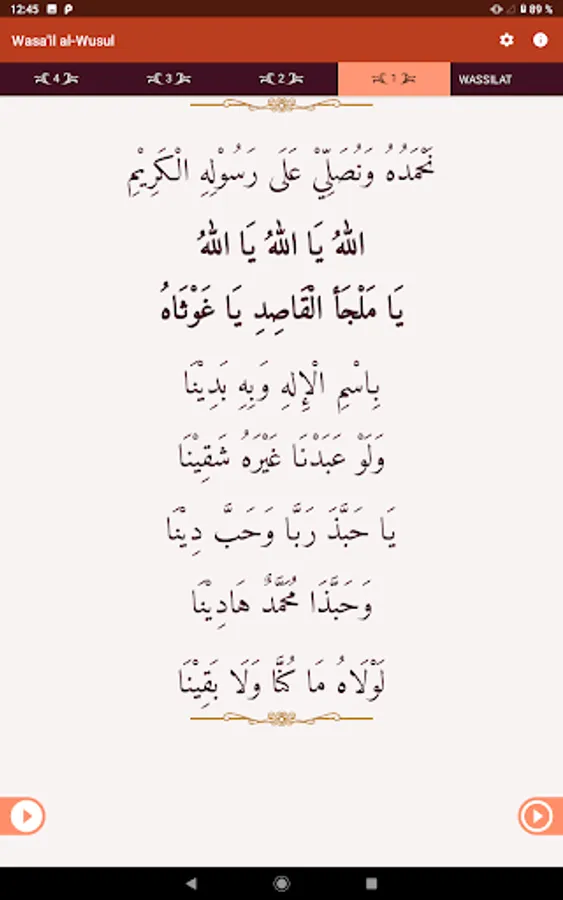 12:45
89 %
Wasa'il al-Wusul
4 3 2 1 WASSILAT
نَحْمَدُهُ وَنُصَلِّيْ عَلَى رَسُوْلِهِ الْكَرِيْمِ
اللهُ يَا اللهُ يَا اللهُ
يَا مَلْجَأَ الْقَاصِدِ يَا غَوْثَاهُ
بِاسْمِ الْإِلهِ وَبِهِ بَدِيْنَا
وَلَوْ عَبَدْنَا غَيْرَهُ شَقِيْنَا
يَا حَبَّذَ رَبَّا وَحَبَّ دِيْنَا
وَحَبَّذَا مُحَمَّدٌ هَادِيْنَا
لَوْلَاهُ مَا كُنَّا وَلَا بَقِيْنَا